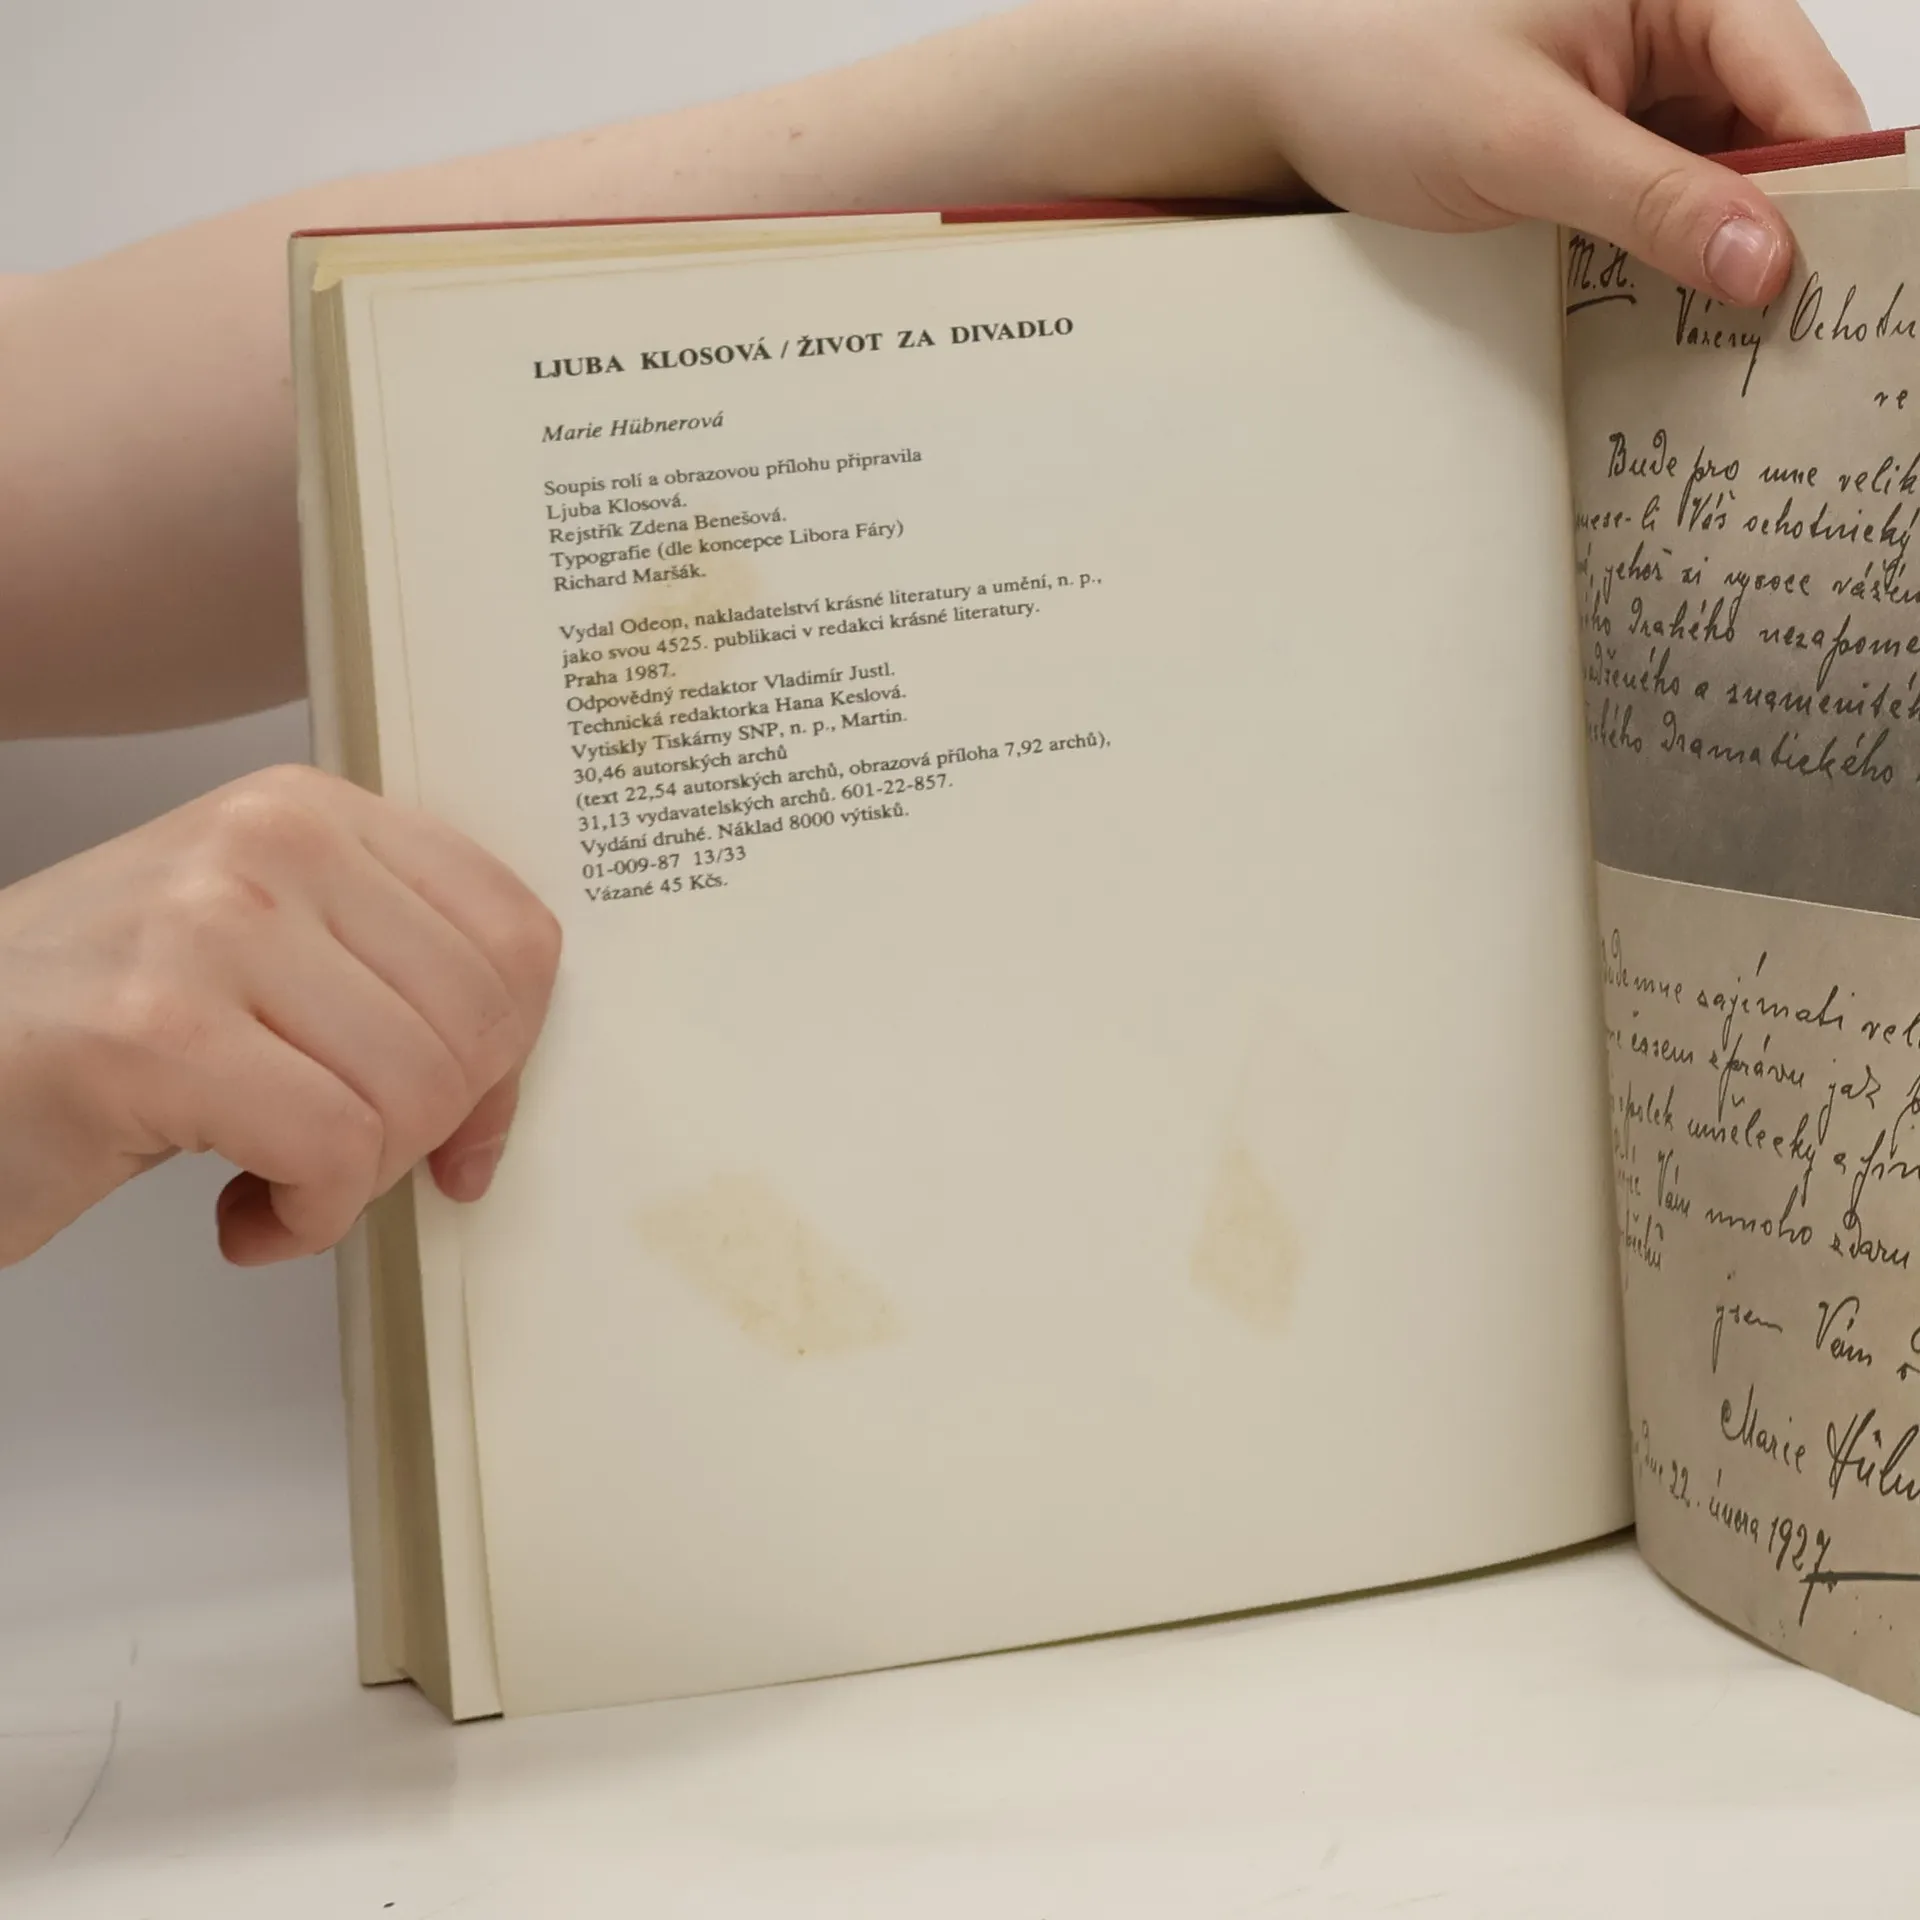 LJUBA KLOSOVÁ / ŽIVOT ZA DIVADLO
Marie Hübnerová
Soupis rolí a obrazovou přílohu připravila
Ljuba Klosová.
Rejstřík Zdena Benešová.
Typografie (dle koncepce Libora Fáry)
Richard Maršák.
Vydal Odeon, nakladatelství krásné literatury a umění, n. p.,
jako svou 4525. publikaci v redakci krásné literatury.
Praha 1987.
Odpovědný redaktor Vladimír Justl.
Technická redaktorka Hana Keslová.
Vytiskly Tiskárny SNP, n. p., Martin.
30,46 autorských archů
(text 22,54 autorských archů, obrazová příloha 7,92 archů),
31,13 vydavatelských archů. 601-22-857.
Vydání druhé. Náklad 8000 výtisků.
01-009-87 13/33
Vázané 45 Kčs.
M. H.
Vážený
Bude pro mne
Váš ochotnický
jehož si vysoce
drahého
a
dramatického
zajímati
časem zprávu jak
umělecky a
Vám mnoho zdaru
jsem Vám
Marie
dne 22. února 1927.